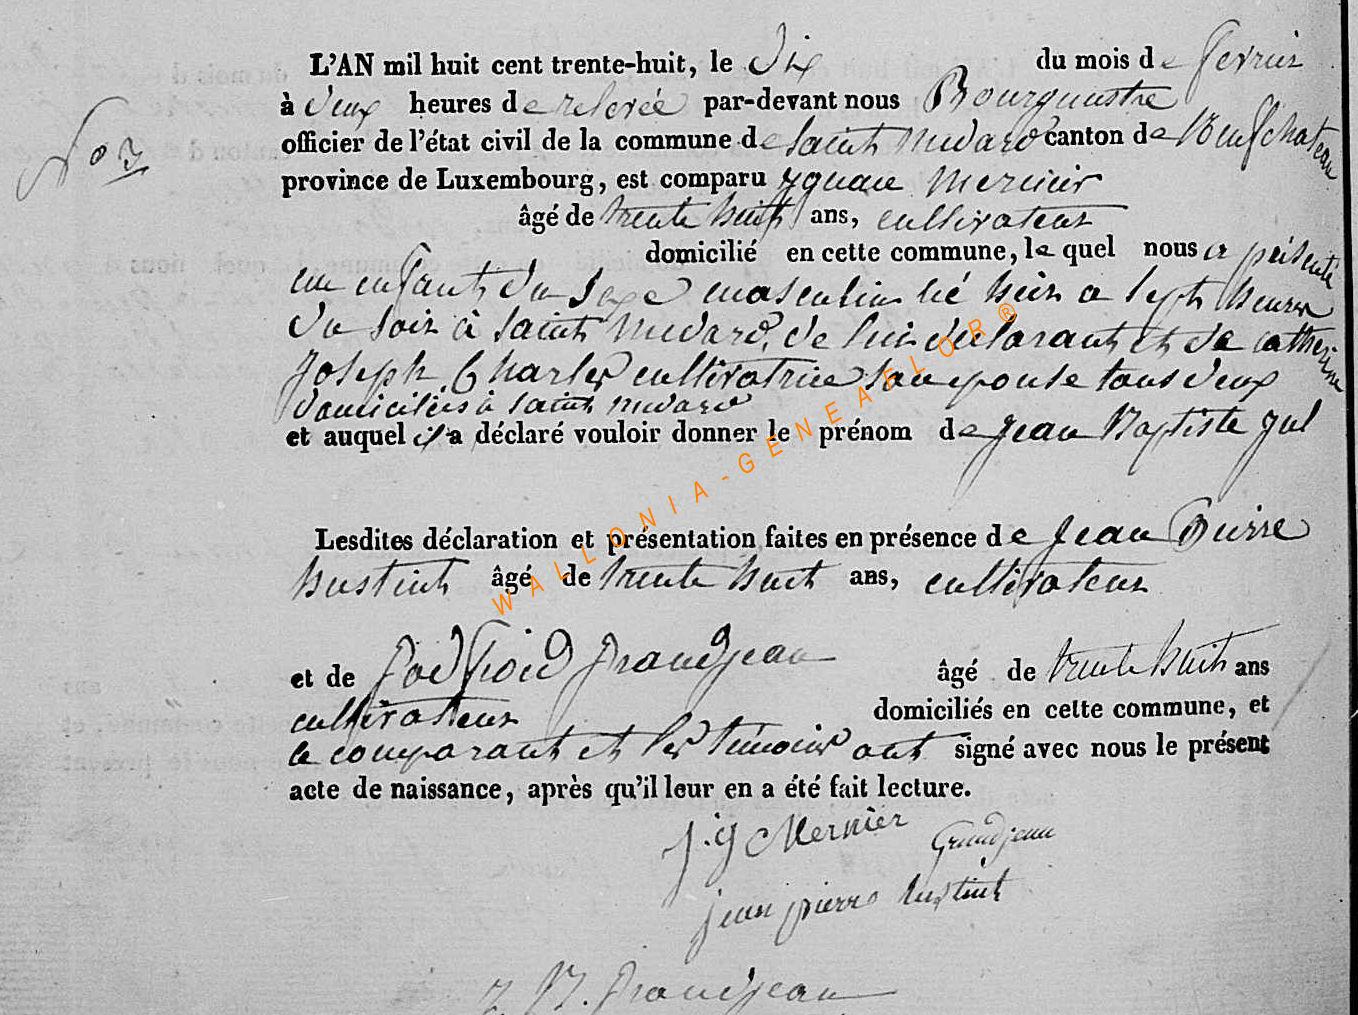 L'AN mil huit cent trente-huit, le Dix du mois de fevrier
à deux heures de relevée par-devant nous Bourguestre
officier de l'état civil de la commune de Saint Medard canton de Neufchateau
province de Luxembourg, est comparu Mernier
âgé de trente huit ans, cultivateur
domicilié en cette commune, le quel nous a présenté
un enfant du sexe masculin né hier a sept heures
du soir à Saint Medard, de lui declarant et de catherine
Joseph Charles cultivatrice son epouse tous deux
domiciliés à Saint Medard
et auquel il a déclaré vouloir donner le prénom de Jean Baptiste
Lesdites déclaration et présentation faites en présence de Jean Pierre
hustin âgé de trente huit ans, cultivateur
et de Godfroid Grandjean âgé de trente huit ans
cultivateur domiciliés en cette commune, et
le comparant et les témoins ont signé avec nous le présent
acte de naissance, après qu'il leur en a été fait lecture.
j.g Mernier Grandjean
jean pierre hustin
Grandjean
WALLONIA-GENEAFLOR®